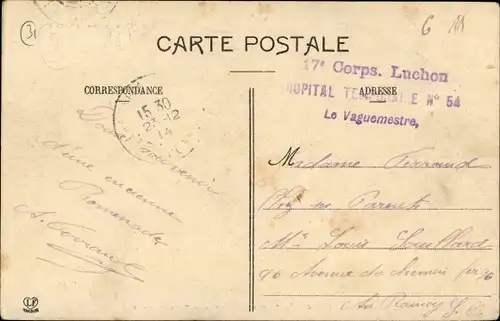 31
6 M
CARTE POSTALE
17e Corps. Luchon
HOPITAL N° 54
Le Vaguemestre,
CORRESPONDANCE
ADRESSE
15 30
23-12
14
Doux Souvenir
d'une ancienne
Promenade
A. Ferrand
Madame Ferrand
Chez ses Parents
Mr Louis
96 Avenue du chemin
Au Raincy